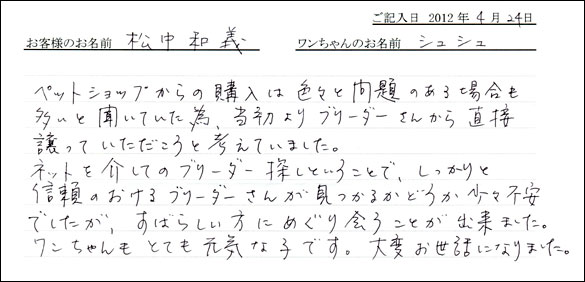 ご記入日 2012年4月24日
お客様のお名前 松中和義 ワンちゃんのお名前 シュシュ
ペットショップからの購入は色々と問題のある場合も
多いと聞いていた為、当初よりブリーダーさんから直接
譲っていただこうと考えていました。
ネットを介してのブリーダー探しということで、しっかりと
信頼のおけるブリーダーさんが見つかるかどうか少々不安
でしたが、すばらしい方にめぐり会うことが出来ました。
ワンちゃんもとても元気な子です。大変お世話になりました。